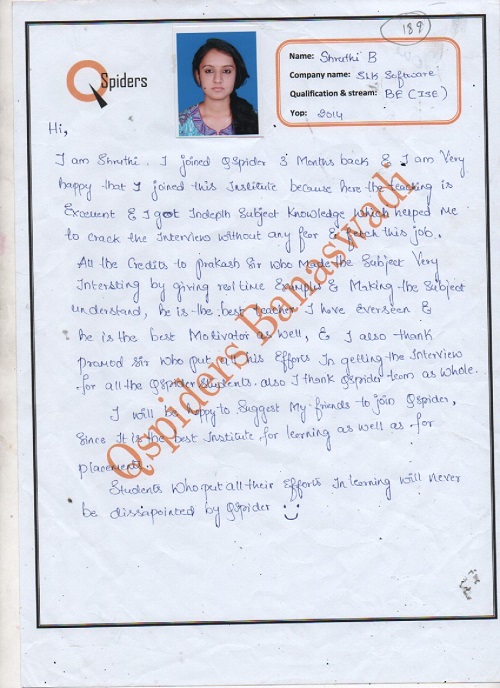 189
QSpiders
Name: Shruthi B
Company name: SLK Software
Qualification & stream: BE (ISE)
Yop: 2014
Hi,
I am Shruthi. I joined QSpider 3 Months back & I am Very
happy that I joined this Institute because here the teaching is
Excellent & I got Indepth Subject Knowledge which helped me
to crack the Interview without any fear & fetch this job.
All the Credits to prakash Sir who made the Subject Very
Intersting by giving real time Examples & Making the Subject
understand, he is the best teacher I have everseen &
he is the best Motivator as well, & I also thank
pramod Sir who put all his Efforts In getting the Interview
for all the QSpider Students. also I thank QSpider team as whole.
I will be happy to Suggest My friends to join QSpider,
Since It is the best Institute for learning as well as for
placement.
Students who put all their Efforts In learning will never
be dissapointed by QSpider
Qspiders Banaswadi